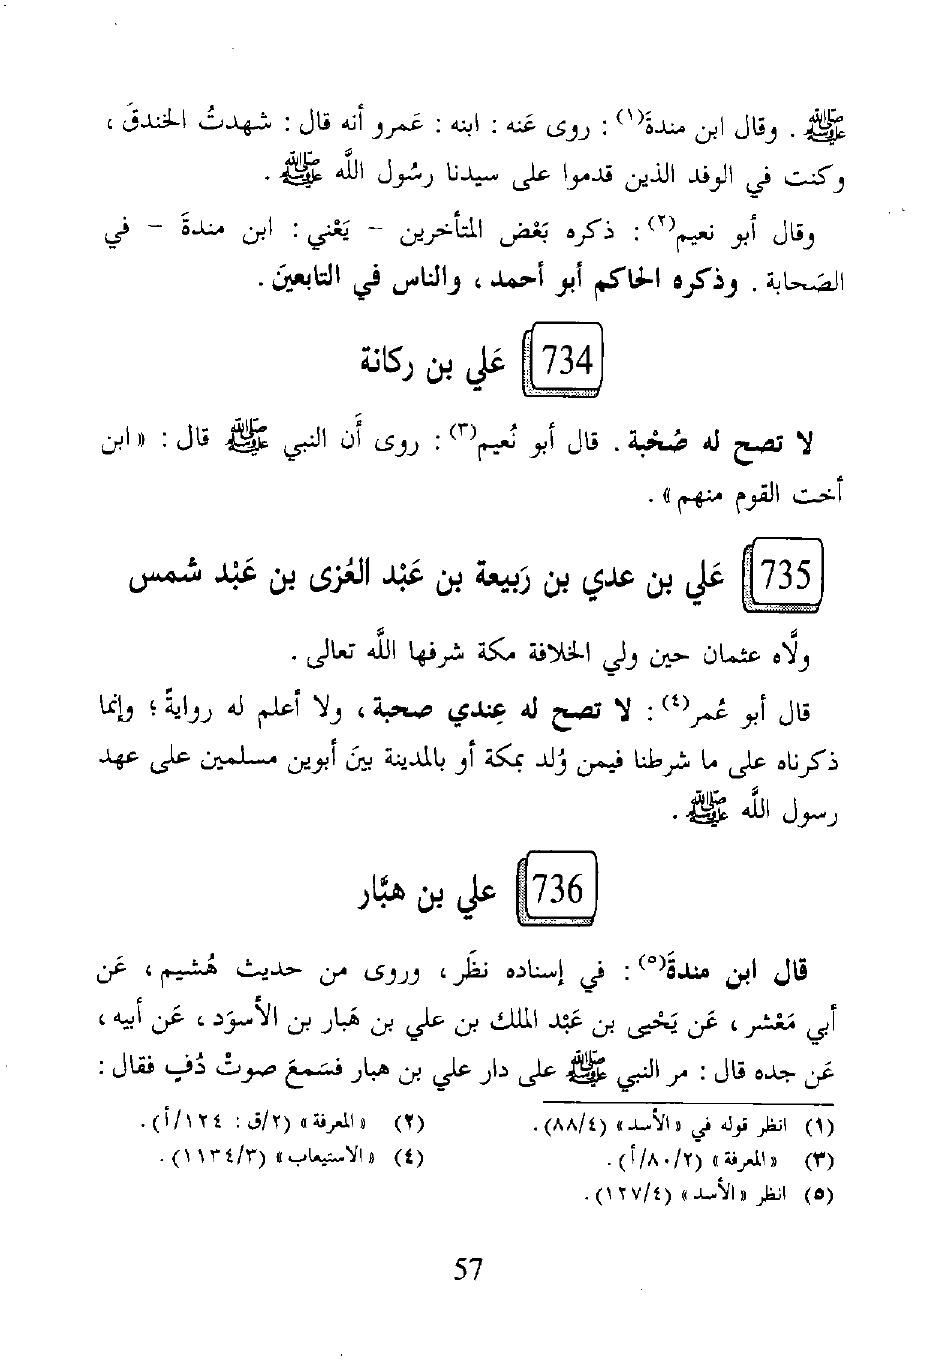 ﷺ . وقال ابن مندةَ(١) : روى عَنه : ابنه : عَمرو أنه قال : شهدتُ الخندقَ ،
وكنت في الوفد الذين قدموا على سيدنا رسُول اللَّه ﷺ .
وقال أبو نعيم(٢) : ذكره بَعْض المتأخرين – يَعْني : ابن مندةَ – في
الصَحابة . وذكره الحاكم أبو أحمد ، والناس في التابعينَ .
734 عَلي بن ركانة
لا تصح له صُحْبة . قال أبو نُعيم(٣) : روى أَن النبي ﷺ قال : « ابن
أخت القوم منهم » .
735 عَلي بن عدي بن رَبيعة بن عَبْد العُزى بن عَبْد شمس
ولَّاه عثمان حين ولي الخلافة مكة شرفها اللَّه تعالى .
قال أبو عُمر(٤) : لا تصح له عِندي صحبة ، ولا أعلم له روايةً ؛ وإنما
ذكرناه على ما شرطنا فيمن وُلد بمكة أو بالمدينة بينَ أبوين مسلمين على عهد
رسول اللَّه ﷺ .
736 علي بن هبَّار
قال ابن مندةَ(٥) : في إسناده نظَر ، وروى من حديث هُشيم ، عَن
أبي مَعْشر ، عَن يَحْيى بن عَبْد الملك بن علي بن هَبار بن الأسوَد ، عَن أبيه ،
عَن جده قال : مر النبي ﷺ على دار علي بن هبار فسَمعَ صوتْ دُفٍ فقال :
(١) انظر قوله في « الأسد » (٨٨/٤) . (٢) « المعرفة » (٢/ق : ١٢٤/أ) .
(٣) « المعرفة » (٨٠/٢/أ) . (٤) « الاستيعاب » (١١٣٤/٣) .
(٥) انظر « الأسد » (١٢٧/٤) .
57